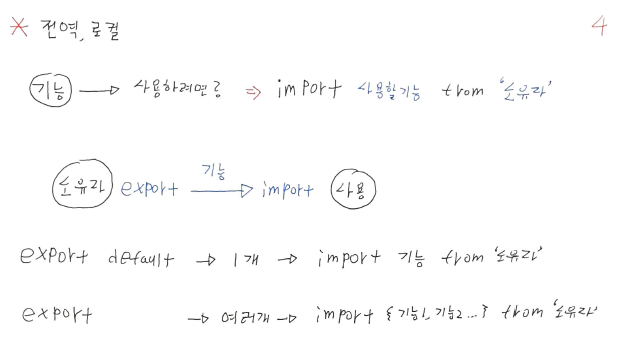 * 전역, 로컬 4
기능 → 사용하려면? ⇒ import 사용할기능 from '소유자'
소유자 export 기능 → import 사용
export default → 1개 → import 기능 from '소유자'
export → 여러개 → import {기능1, 기능2...} from '소유자'